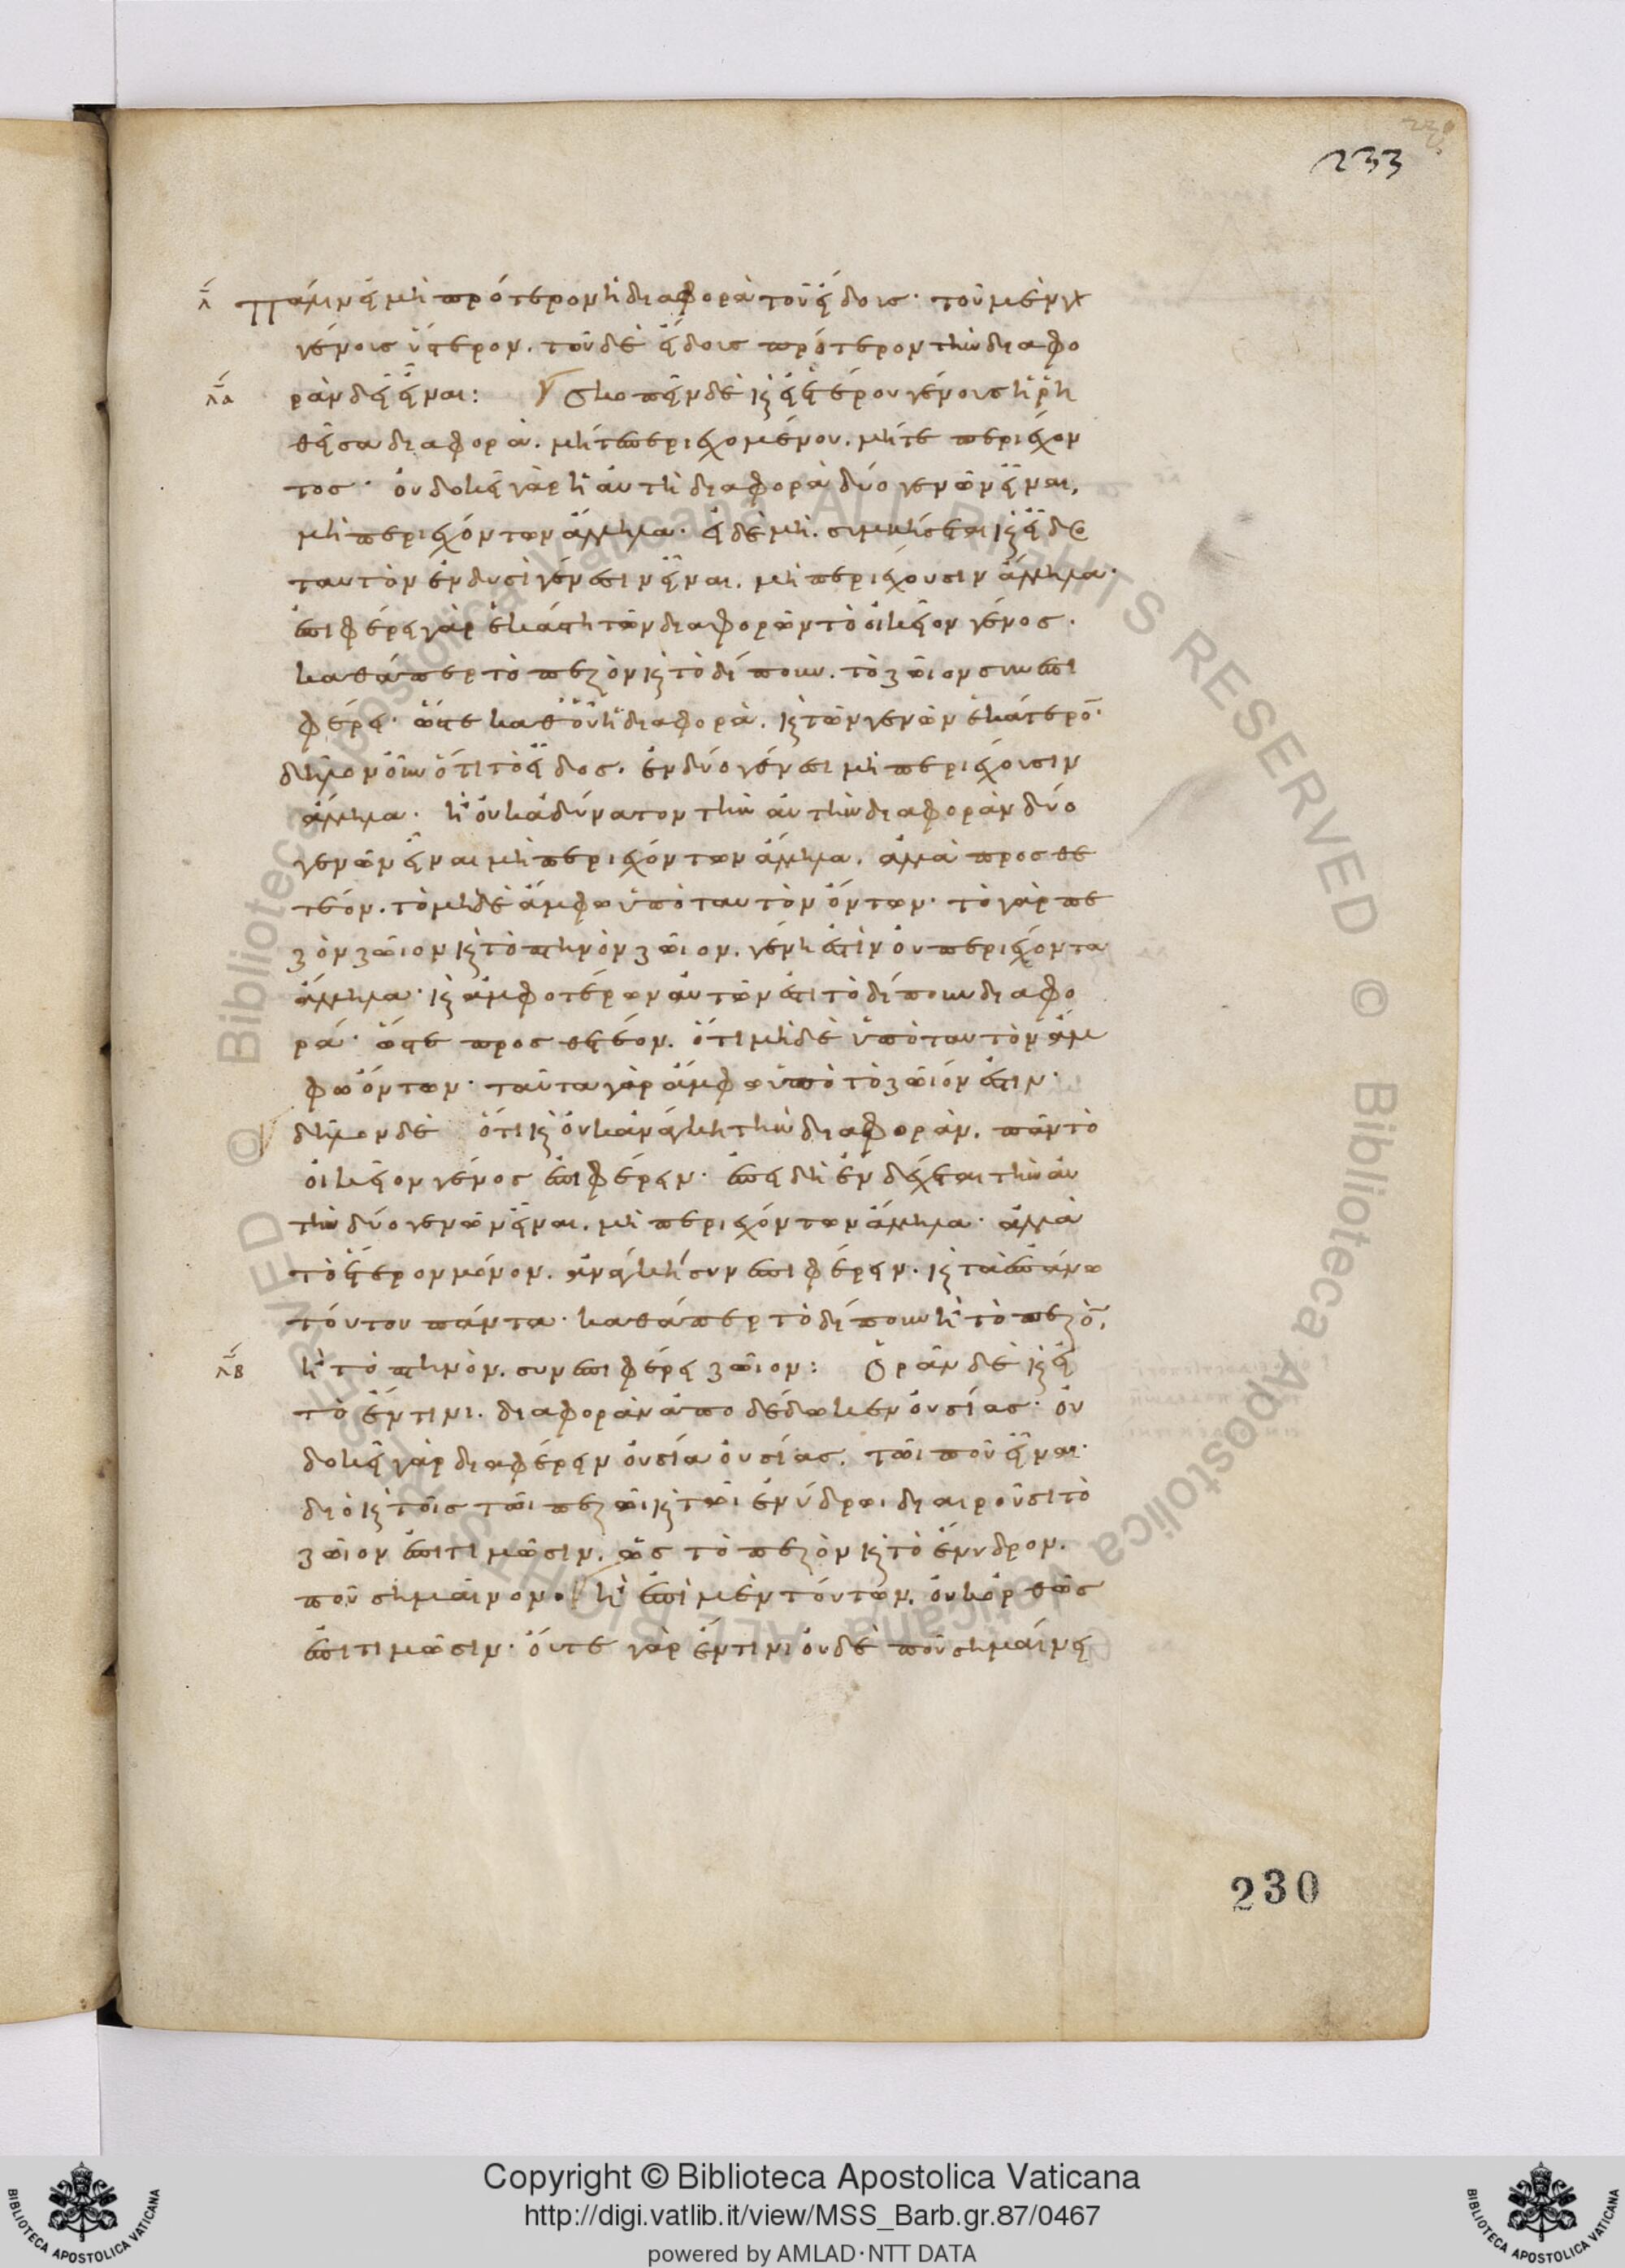 233
λ Πάλιν εἰ μὴ πρότερον ἡ διαφορὰ τοῦ εἴδους· τοῦ μὲν γὰρ
γένους ὕστερον. τοῦ δὲ εἴδους πρότερον τὴν διαφο
λα ρὰν δεῖ εἶναι: Σκοπεῖν δὲ καὶ εἰ ἑτέρου γένους ἡ ῥη
θεῖσα διαφορὰ. μήτε περιεχομένου. μήτε περιέχον
τος· οὐ δοκεῖ γὰρ ἡ αὐτὴ διαφορὰ δύο γενῶν εἶναι,
μὴ περιεχόντων ἄλληλα· εἰ δὲ μὴ. συμβήσεται καὶ εἶδος
ταυτὸν ἐν δυσὶ γένεσιν εἶναι. μὴ περιέχουσιν ἄλληλα·
ἐπιφέρει γὰρ ἑκάστη τῶν διαφορῶν τὸ οἰκεῖον γένος·
καθάπερ τὸ πεζὸν καὶ τὸ δίπουν. τὸ ζῶιον συνεπι
φέρει· ὥστε καθ' οὗ ἡ διαφορὰ. καὶ τῶν γενῶν ἑκάτερον·
δῆλον οὖν ὅτι τὸ εἶδος. ἐν δύο γένεσι μὴ περιέχουσιν
ἄλληλα· ἢ οὐκ ἀδύνατον τὴν αὐτὴν διαφορὰν δύο
γενῶν εἶναι μὴ περιεχόντων ἄλληλα. ἀλλὰ προσθε
τέον. τὸ μηδὲ ἄμφω ὑπὸ ταυτὸν ὄντων· τὸ γὰρ πε
ζὸν ζῶιον καὶ τὸ πτηνὸν ζῶιον. γένη ἐστὶν οὐ περιέχοντα
ἄλληλα· καὶ ἀμφοτέρων αὐτῶν ἐστι τὸ δίπουν διαφο
ρά· ὥστε προσθετέον. ὅτι μηδὲ ὑπὸ ταυτὸν ἄμ
φω ὄντων· ταῦτα γὰρ ἄμφω ὑπὸ τὸ ζῶιόν ἐστιν·
δῆλον δὲ ὅτι καὶ οὐκ ἀνάγκη τὴν διαφορὰν. πᾶν τὸ
οἰκεῖον γένος ἐπιφέρειν· ἐπειδὴ ἐνδέχεται τὴν αὐ
τὴν δύο γενῶν εἶναι. μὴ περιεχόντων ἄλληλα· ἀλλὰ
τὸ ἕτερον μόνον. ἀνάγκη συνεπιφέρειν. καὶ τὰ ἐπάνω
τούτου πάντα· καθάπερ τὸ δίπουν ἢ τὸ πεζὸν,
λβ ἢ τὸ πτηνὸν. συνεπιφέρει ζῶιον: Ὁρᾶν δὲ καὶ εἰ
τὸ ἔν τινι. διαφορὰν ἀποδέδωκεν οὐσίας· οὐ
δοκεῖ γὰρ διαφέρειν οὐσία οὐσίας. τῶι ποῦ εἶναι·
διὸ καὶ τοῖς τῶι πεζῶι καὶ τῶι ἐνύδρωι διαιροῦσι τὸ
ζῶιον ἐπιτιμῶσιν. ὡς τὸ πεζὸν καὶ τὸ ἔνυδρον.
ποῦ σημαῖνον· ἢ ἐπὶ μὲν τούτων. οὐκ ὀρθῶς
ἐπιτιμῶσιν· οὔτε γὰρ ἔν τινι οὐδὲ ποῦ σημαίνει
230
© Biblioteca Apostolica Vaticana ALL RIGHTS RESERVED
Copyright © Biblioteca Apostolica Vaticana
http://digi.vatlib.it/view/MSS_Barb.gr.87/0467
powered by AMLAD·NTT DATA
BIBLIOTECA APOSTOLICA VATICANA
BIBLIOTECA APOSTOLICA VATICANA